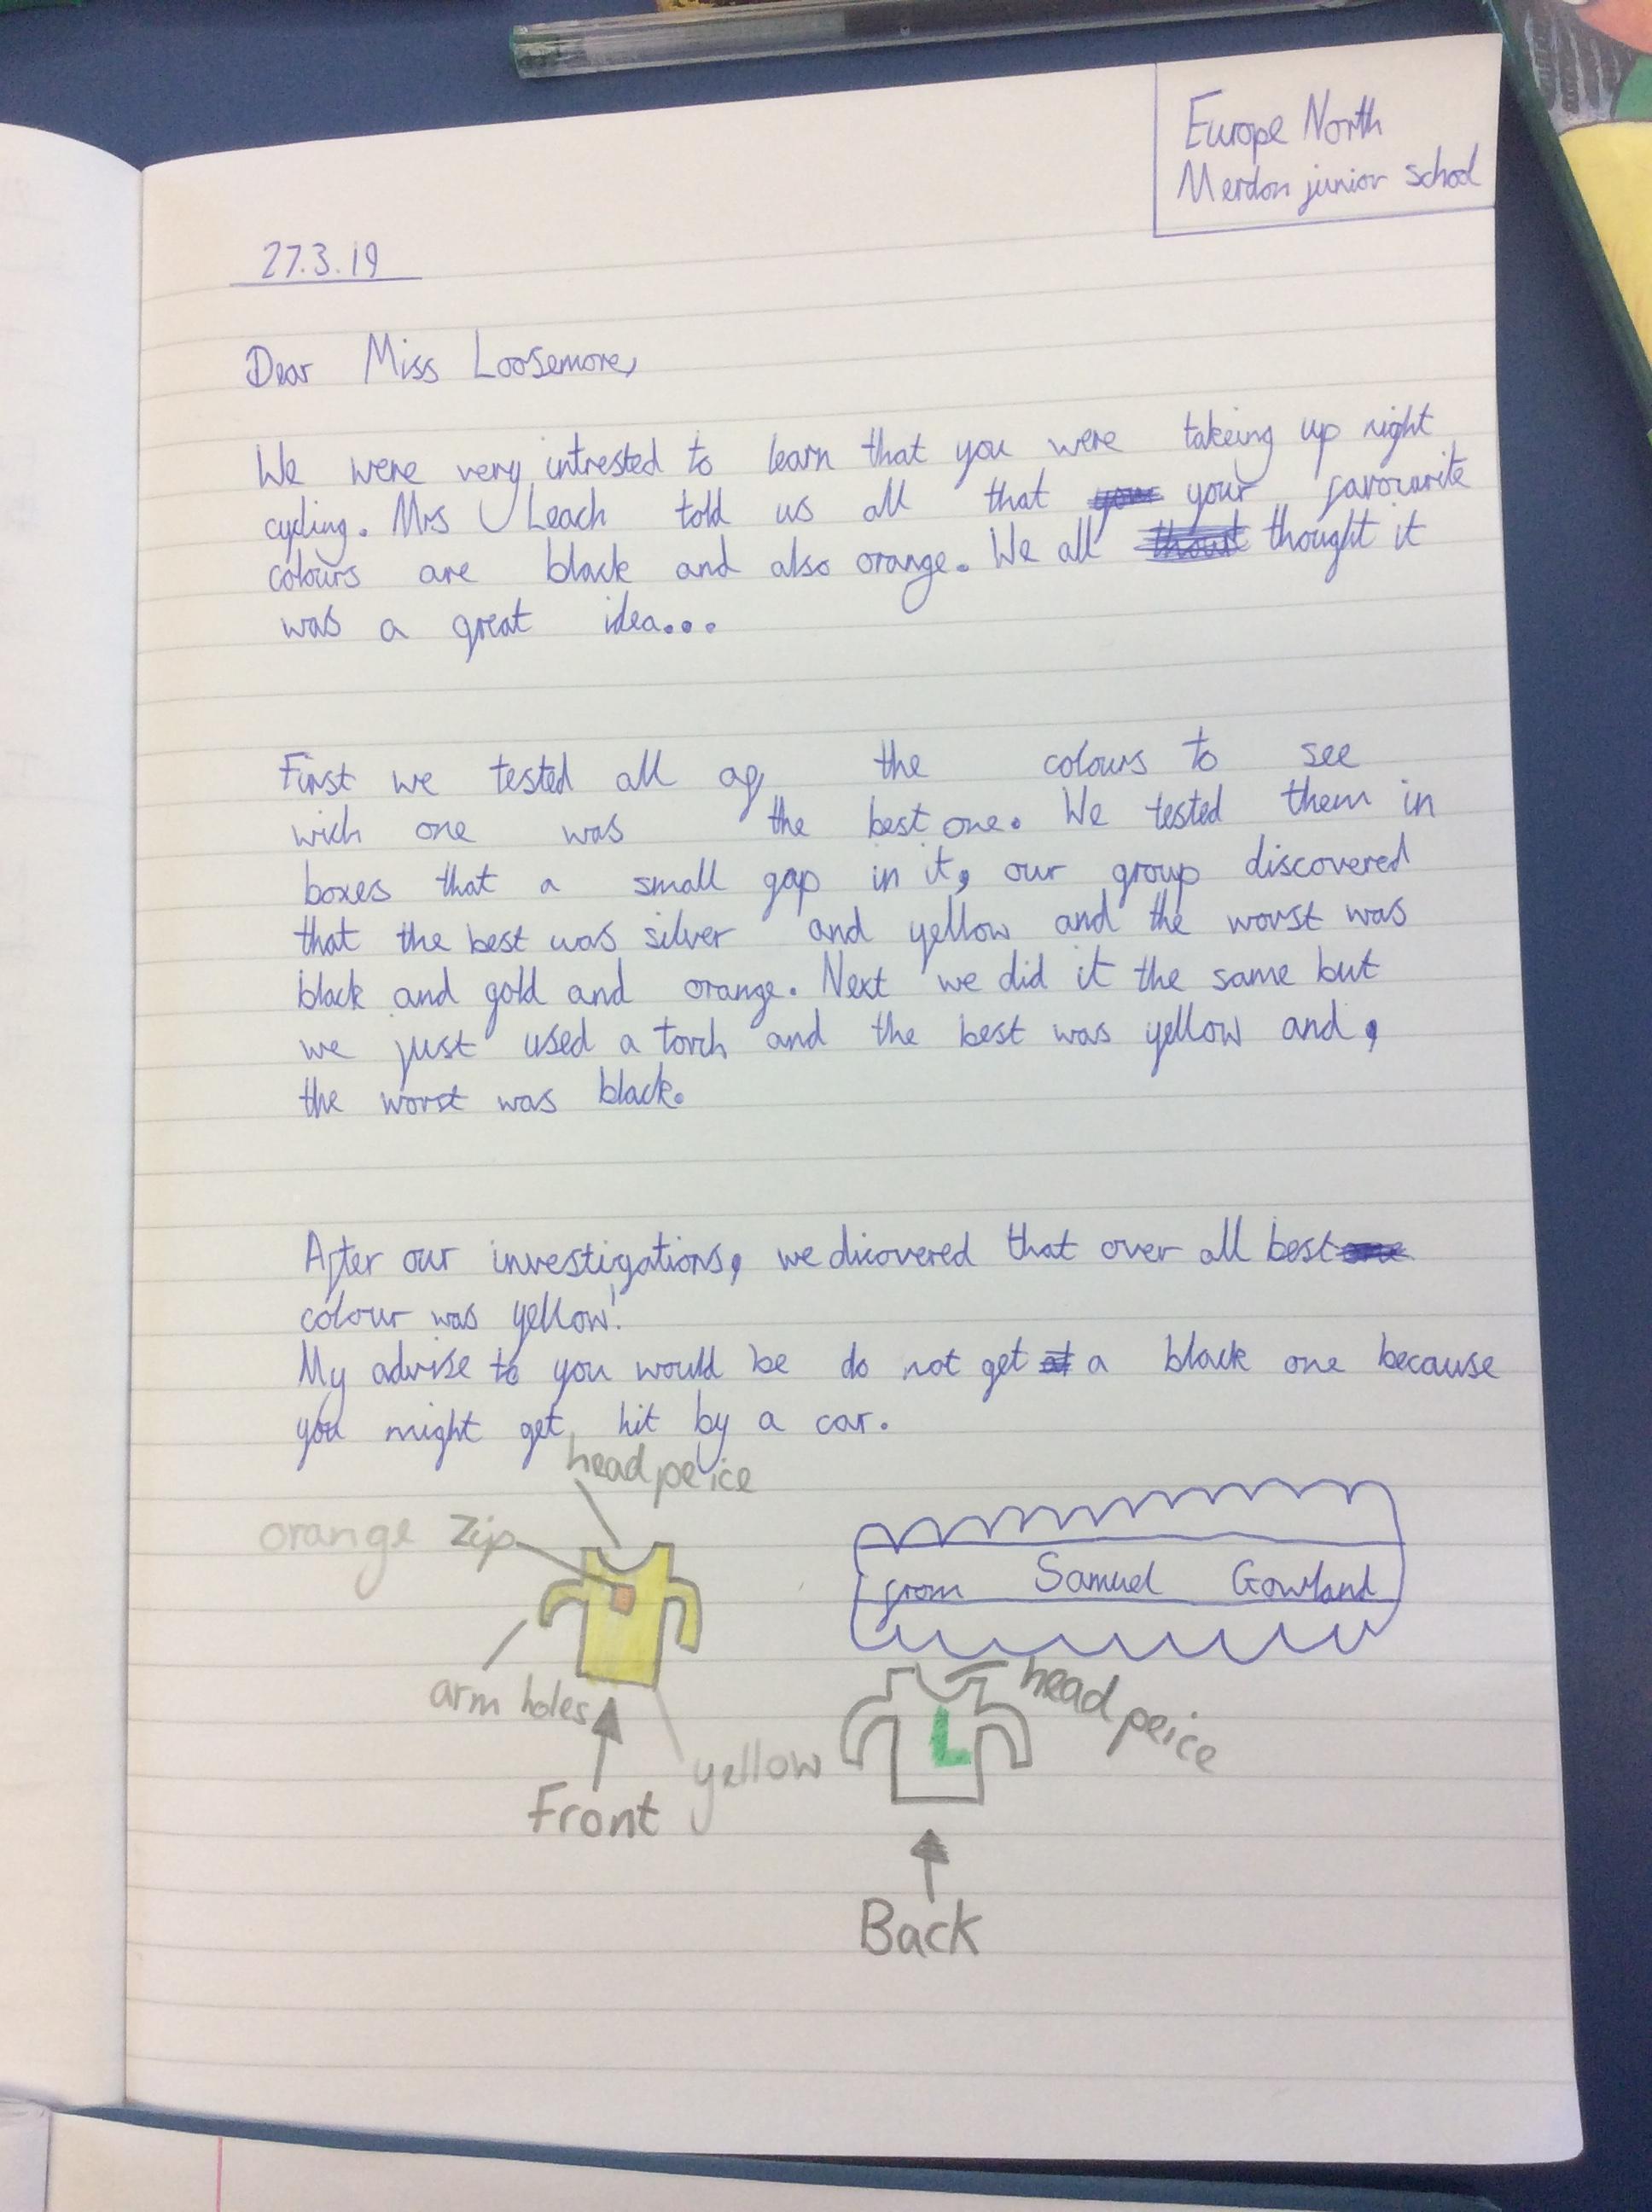 Europe North
Merdon junior school
27.3.19
Dear Miss Loosemore,
We were very intrested to learn that you were takeing up night
cycling. Mrs Leach told us all that your favourite
colours are black and also orange. We all thought it
was a great idea...
First we tested all of the colours to see
wich one was the best one. We tested them in
boxes that a small gap in it, our group discovered
that the best was silver and yellow and the worst was
black and gold and orange. Next we did it the same but
we just used a torch and the best was yellow and,
the worst was black.
After our investigations, we dicovered that over all best
colour was yellow!
My advise to you would be do not get a black one because
you might get hit by a car.
head peice
orange zip
from Samuel Gowland
arm holes
head peice
yellow
L
Front
Back